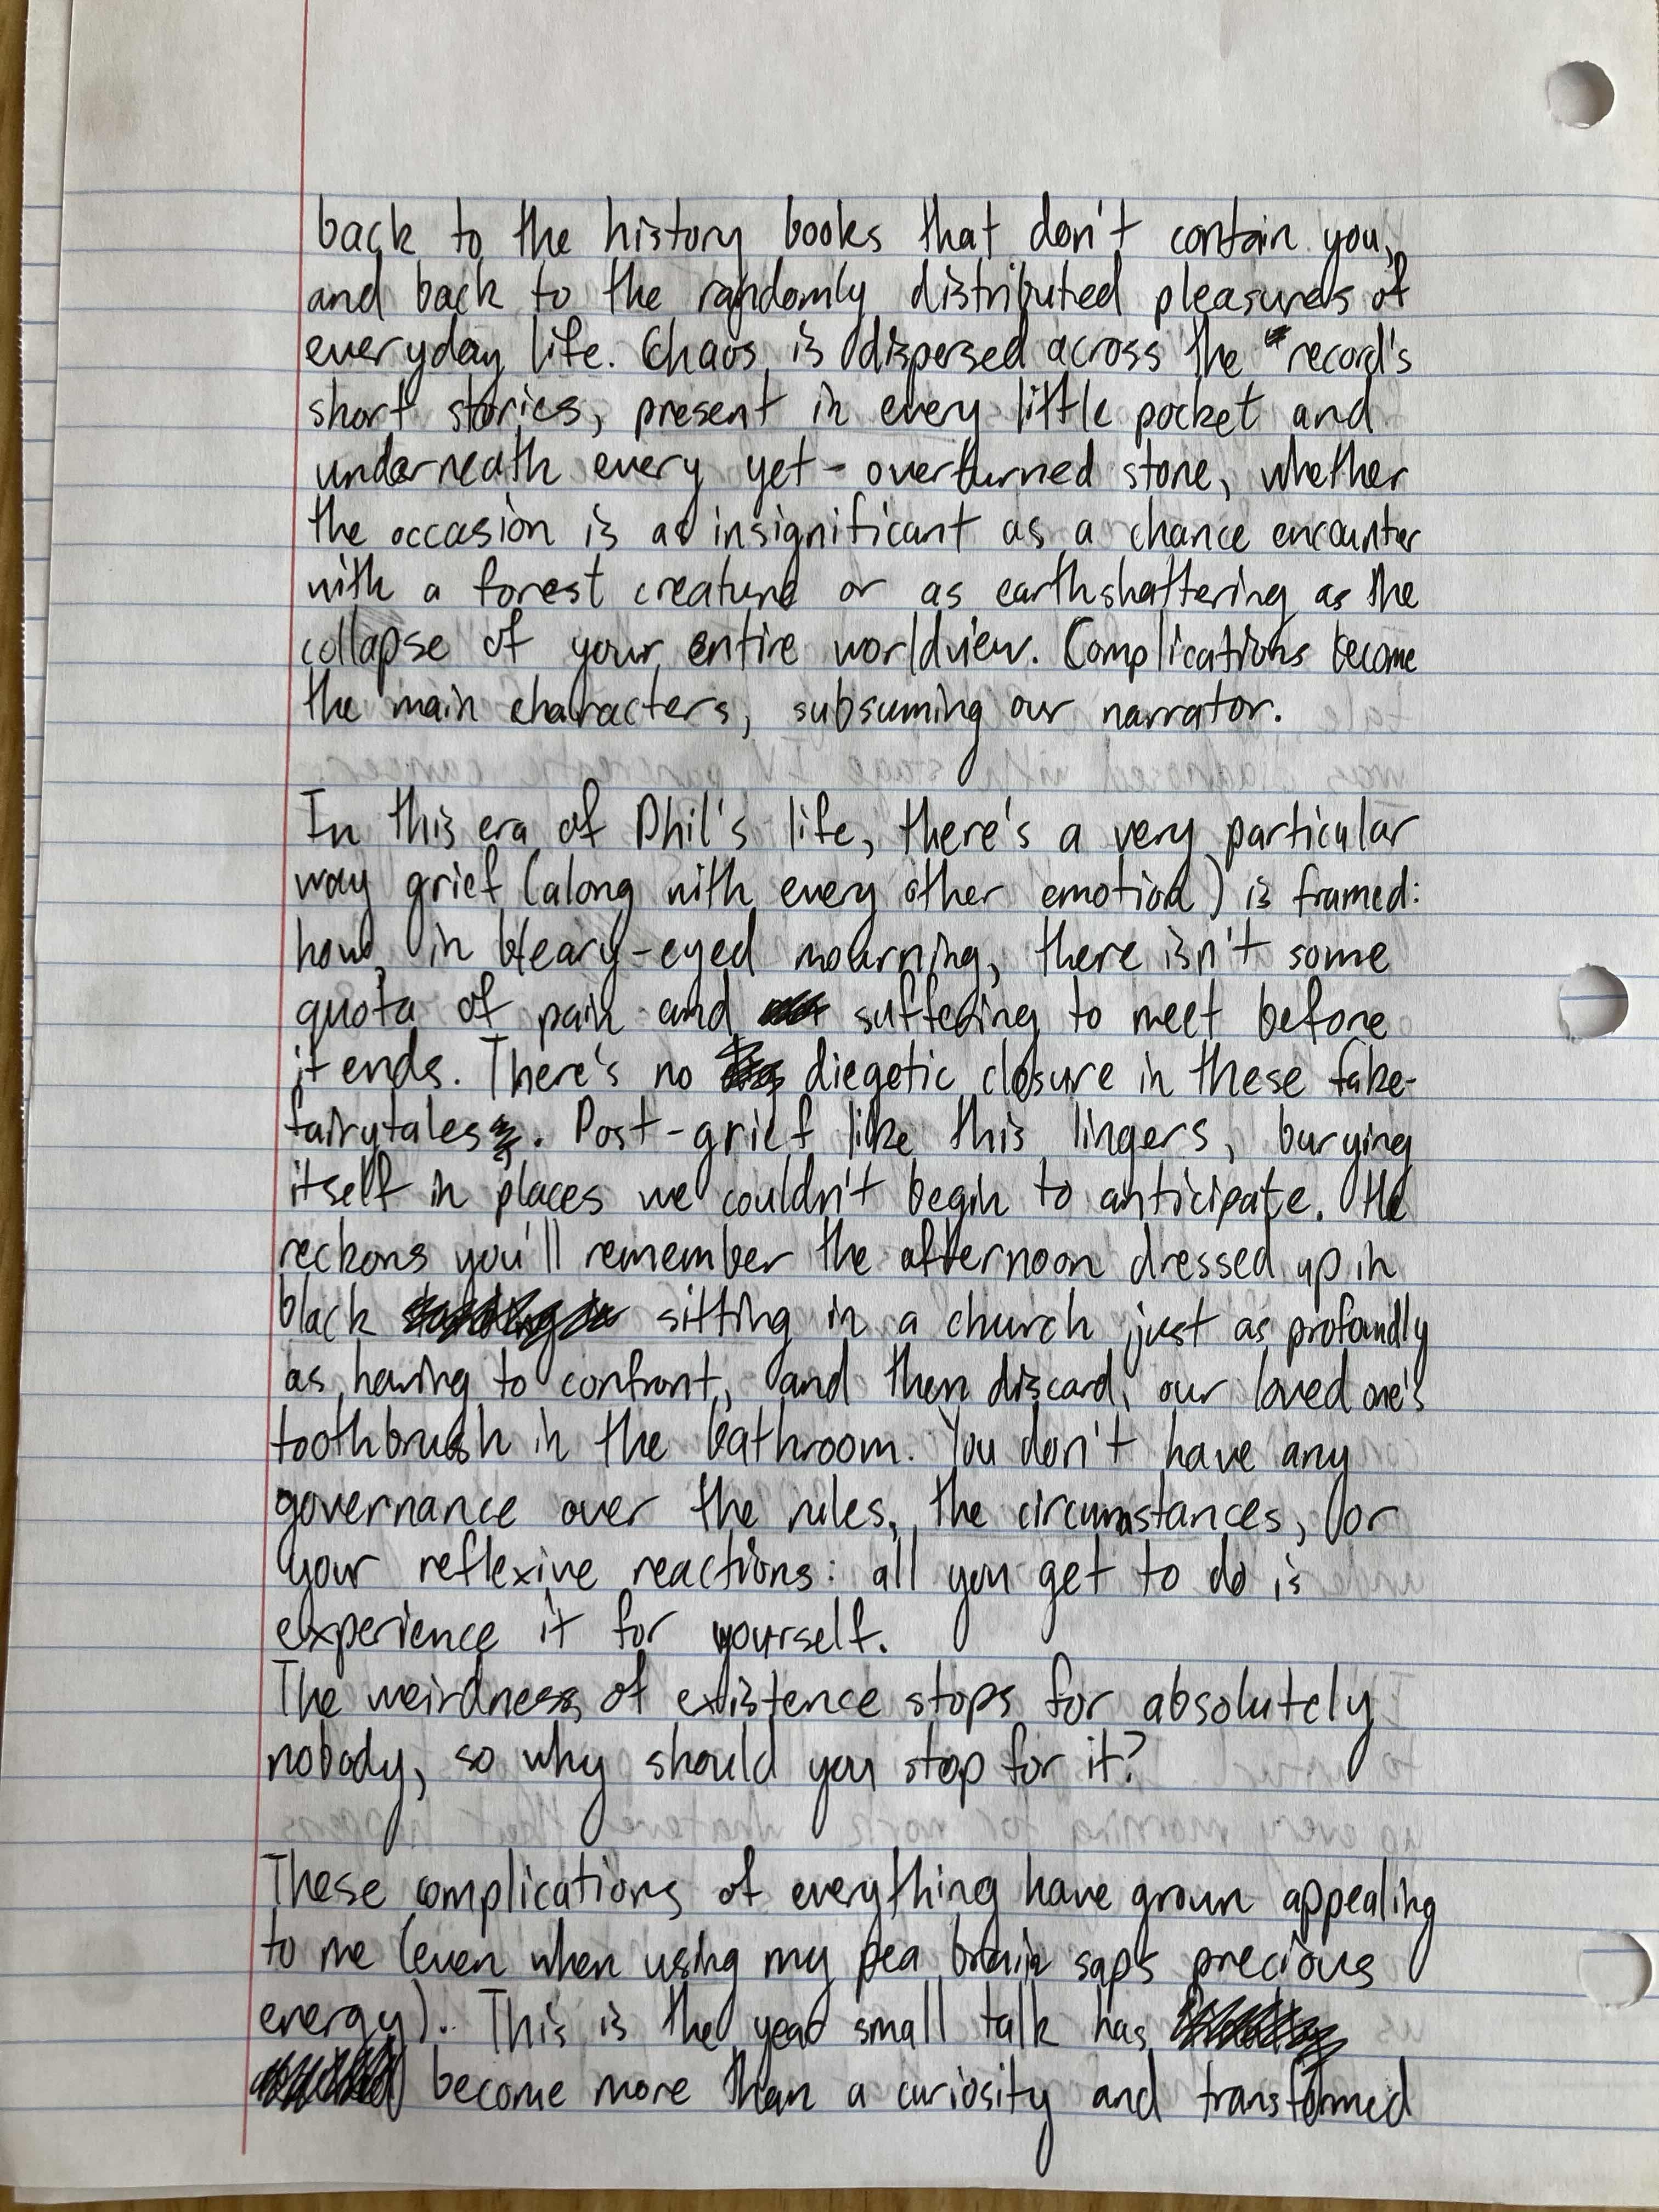 back to the history books that don't contain you,
and back to the randomly distributed pleasures of
everyday life. Chaos is dispersed across the record's
short stories, present in every little pocket and
underneath every yet-overturned stone, whether
the occasion is as insignificant as a chance encounter
with a forest creature or as earthshattering as the
collapse of your entire worldview. Complications become
the main characters, subsuming our narrator.
In this era of Phil's life, there's a very particular
way grief (along with every other emotion) is framed:
how, in bleary-eyed mourning, there isn't some
quota of pain and suffering to meet before
it ends. There's no diegetic closure in these fake-
fairytales. Post-grief like this lingers, burying
itself in places we couldn't begin to anticipate. He
reckons you'll remember the afternoon dressed up in
black sitting in a church just as profoundly
as having to confront, and then discard, our loved one's
toothbrush in the bathroom. You don't have any
governance over the rules, the circumstances, or
your reflexive reactions: all you get to do is
experience it for yourself.
The weirdness of existence stops for absolutely
nobody, so why should you stop for it?
These complications of everything have grown appealing
to me (even when using my pea brain saps precious
energy). This is the year small talk has
become more than a curiosity and transformed